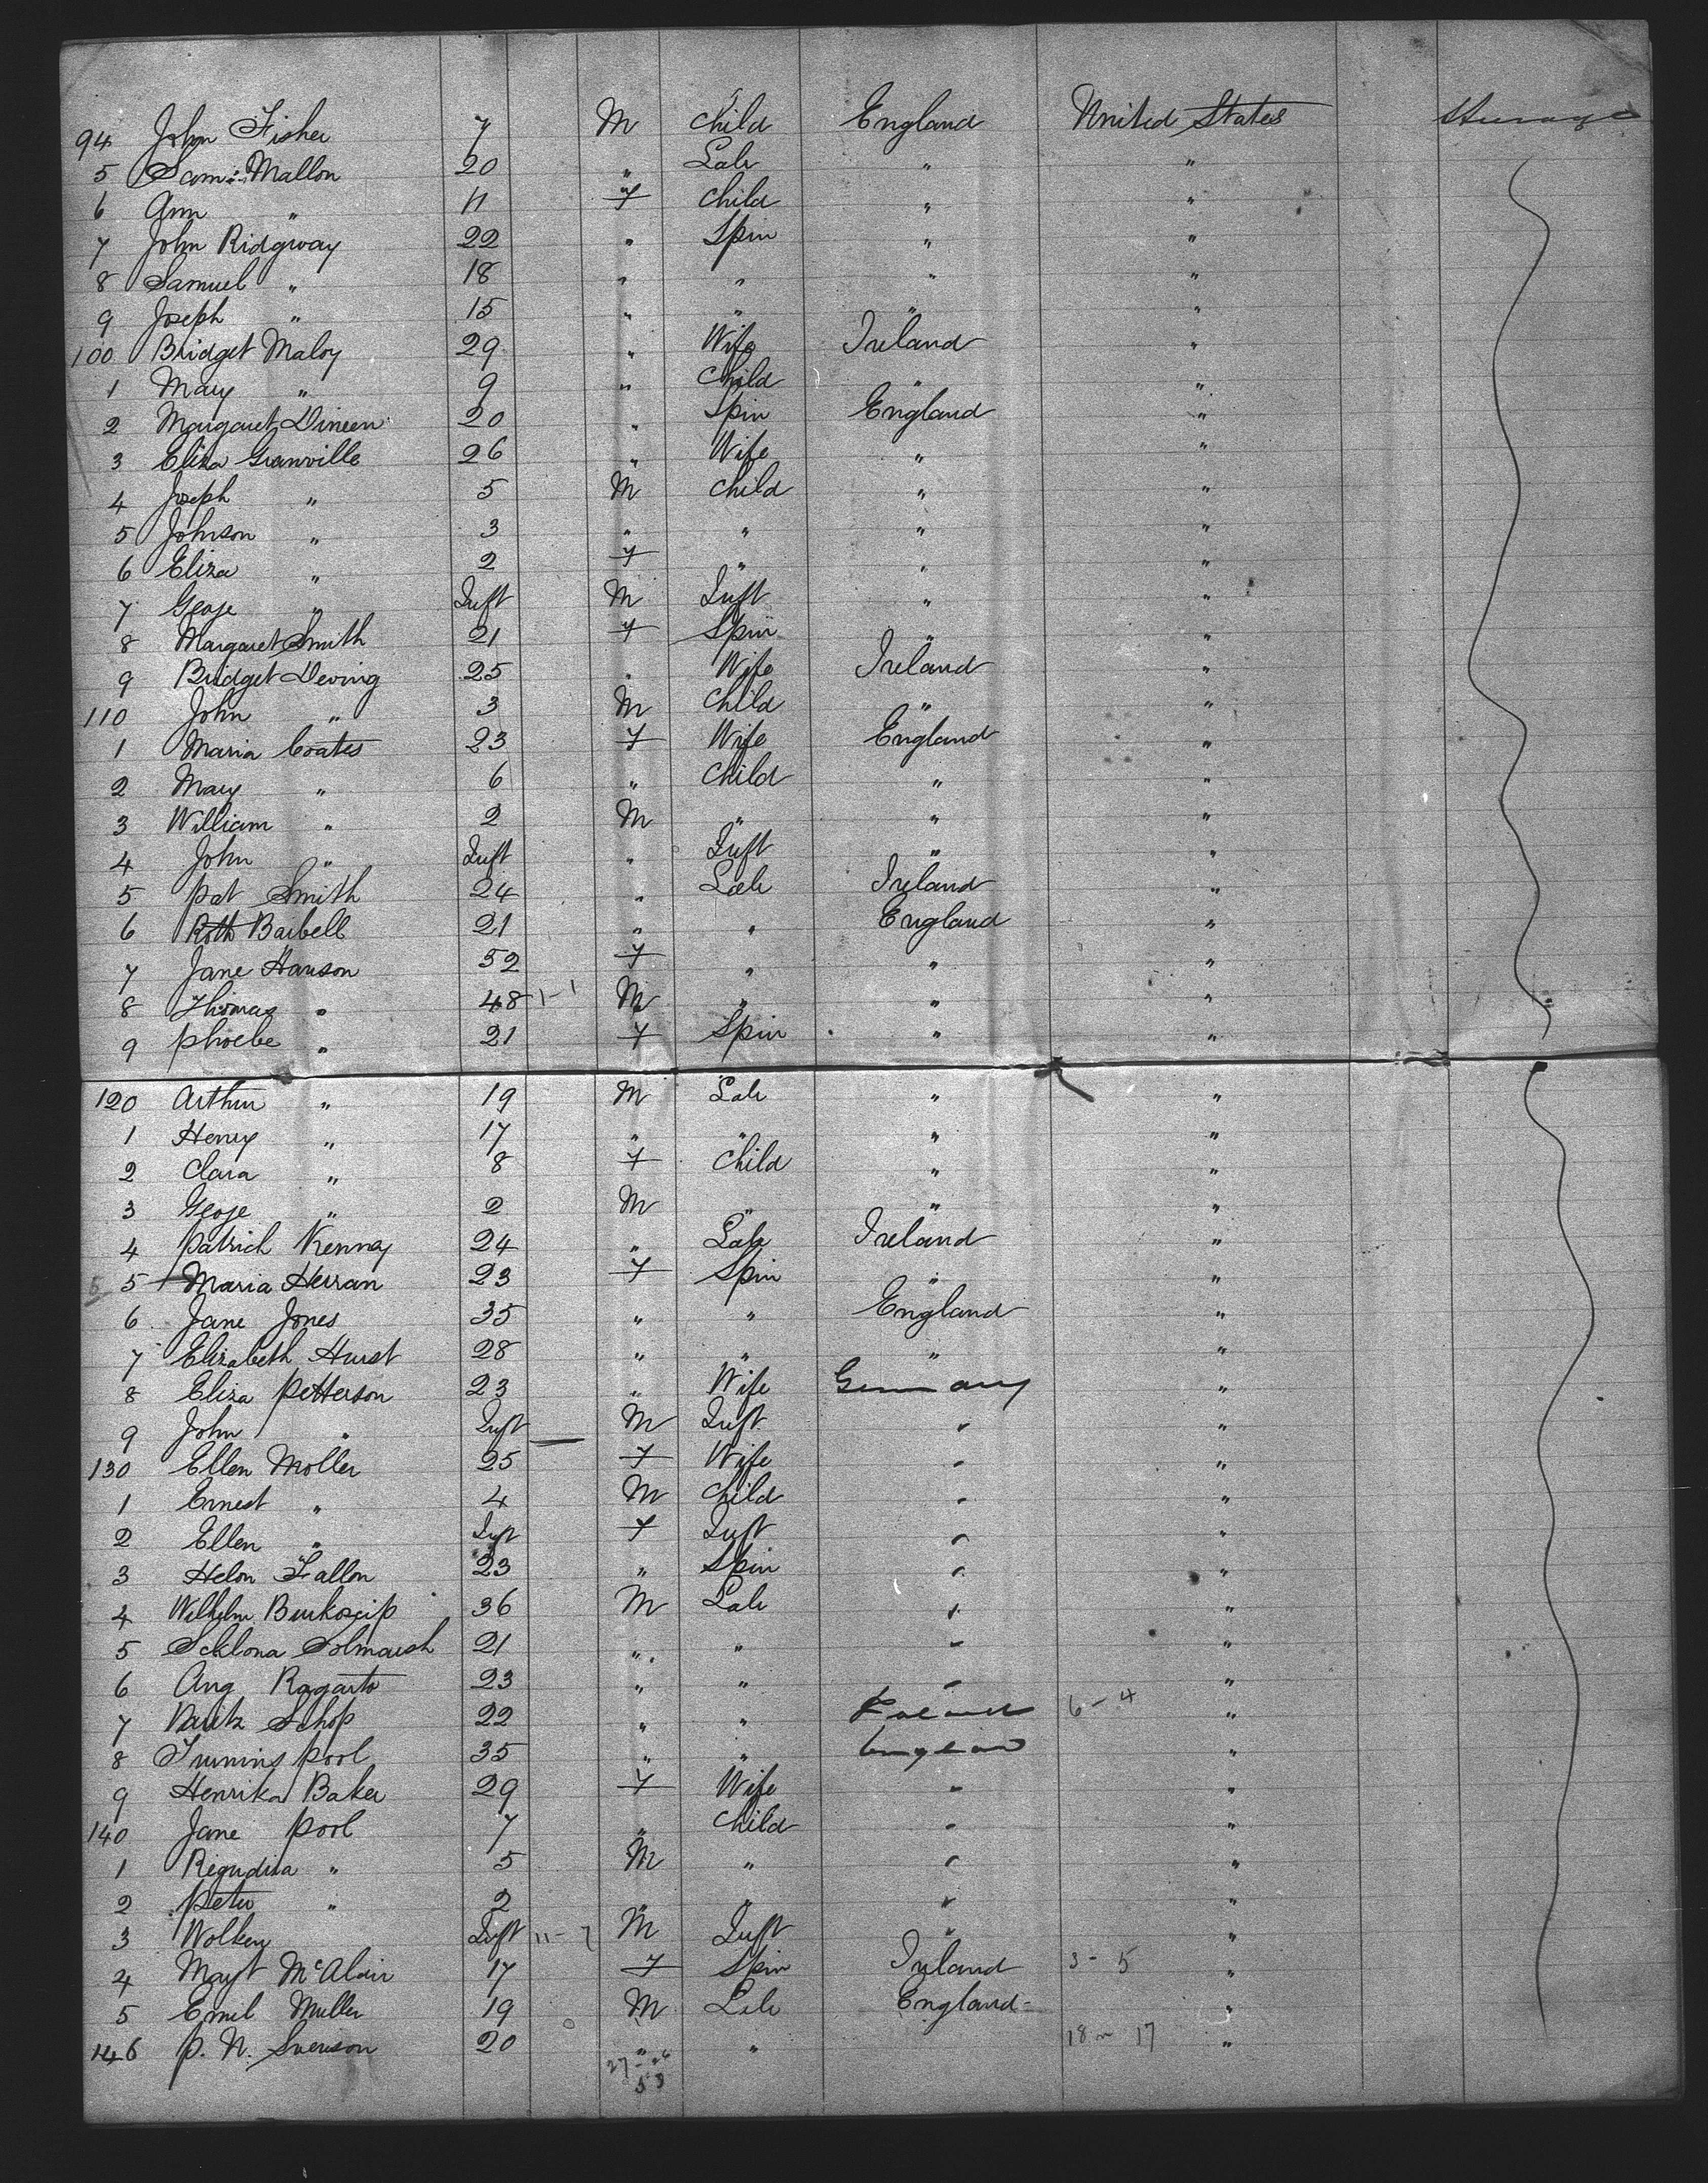 94 John Fisher 7 M Child England United States Steerage
5 Sam: Mallon 20 " Lab " "
6 Ann " 11 F Child " "
7 John Ridgway 22 " Spin " "
8 Samuel " 18 " " " "
9 Joseph " 15 " " " "
100 Bridget Maloy 29 " Wife Ireland "
1 Mary " 9 " Child " "
2 Margaret Dineen 20 " Spin England "
3 Eliza Granville 26 " Wife " "
4 Joseph " 5 M Child " "
5 Johnson " 3 " " " "
6 Eliza " 2 F " " "
7 Geoge " Inft M Inft " "
8 Margaret Smith 21 F Spin " "
9 Bridget Dering 25 " Wife Ireland "
110 John " 3 M Child " "
1 Maria Coates 23 F Wife England "
2 Mary " 6 " Child " "
3 William " 2 M " " "
4 John " Inft " Inft " "
5 Pat Smith 24 " Lab Ireland "
6 Barbell 21 " " England "
7 Jane Hanson 52 F " " "
8 Thomas " 48 1-1 M " " "
9 Phoebe " 21 F Spin " "
120 Arthur " 19 M Lab " "
1 Henry " 17 " " " "
2 Clara " 8 F Child " "
3 Geoge " 2 M " " "
4 Patrick Kenny 24 " Lab Ireland "
5 Maria Herran 23 F Spin " "
6 Jane Jones 35 " " England "
7 Elizabeth Hurst 28 " " " "
8 Eliza Petterson 23 " Wife Germany "
9 John " Inft M Inft " "
130 Ellen Moller 25 F Wife " "
1 Ernest " 4 M Child " "
2 Ellen " Inft F Inft " "
3 Helon Fallon 23 " Spin " "
4 Wilhelm 36 M Lab " "
5 21 " " " "
6 Aug Ragarto 23 " " " "
7 Schop 22 " " 6-4 "
8 Pool 35 " " England "
9 Henrika Baker 29 F Wife " "
140 Jane Pool 7 " Child " "
1 " 5 M " " "
2 Peter " 2 " " " "
3 Wolken Inft 11-7 M Inft " "
4 Margt McAlair 17 F Spin Ireland 3-5 "
5 Emil Muller 19 M Lab England "
146 P. N. Svenson 20 " " 18 17 "
27-26
53